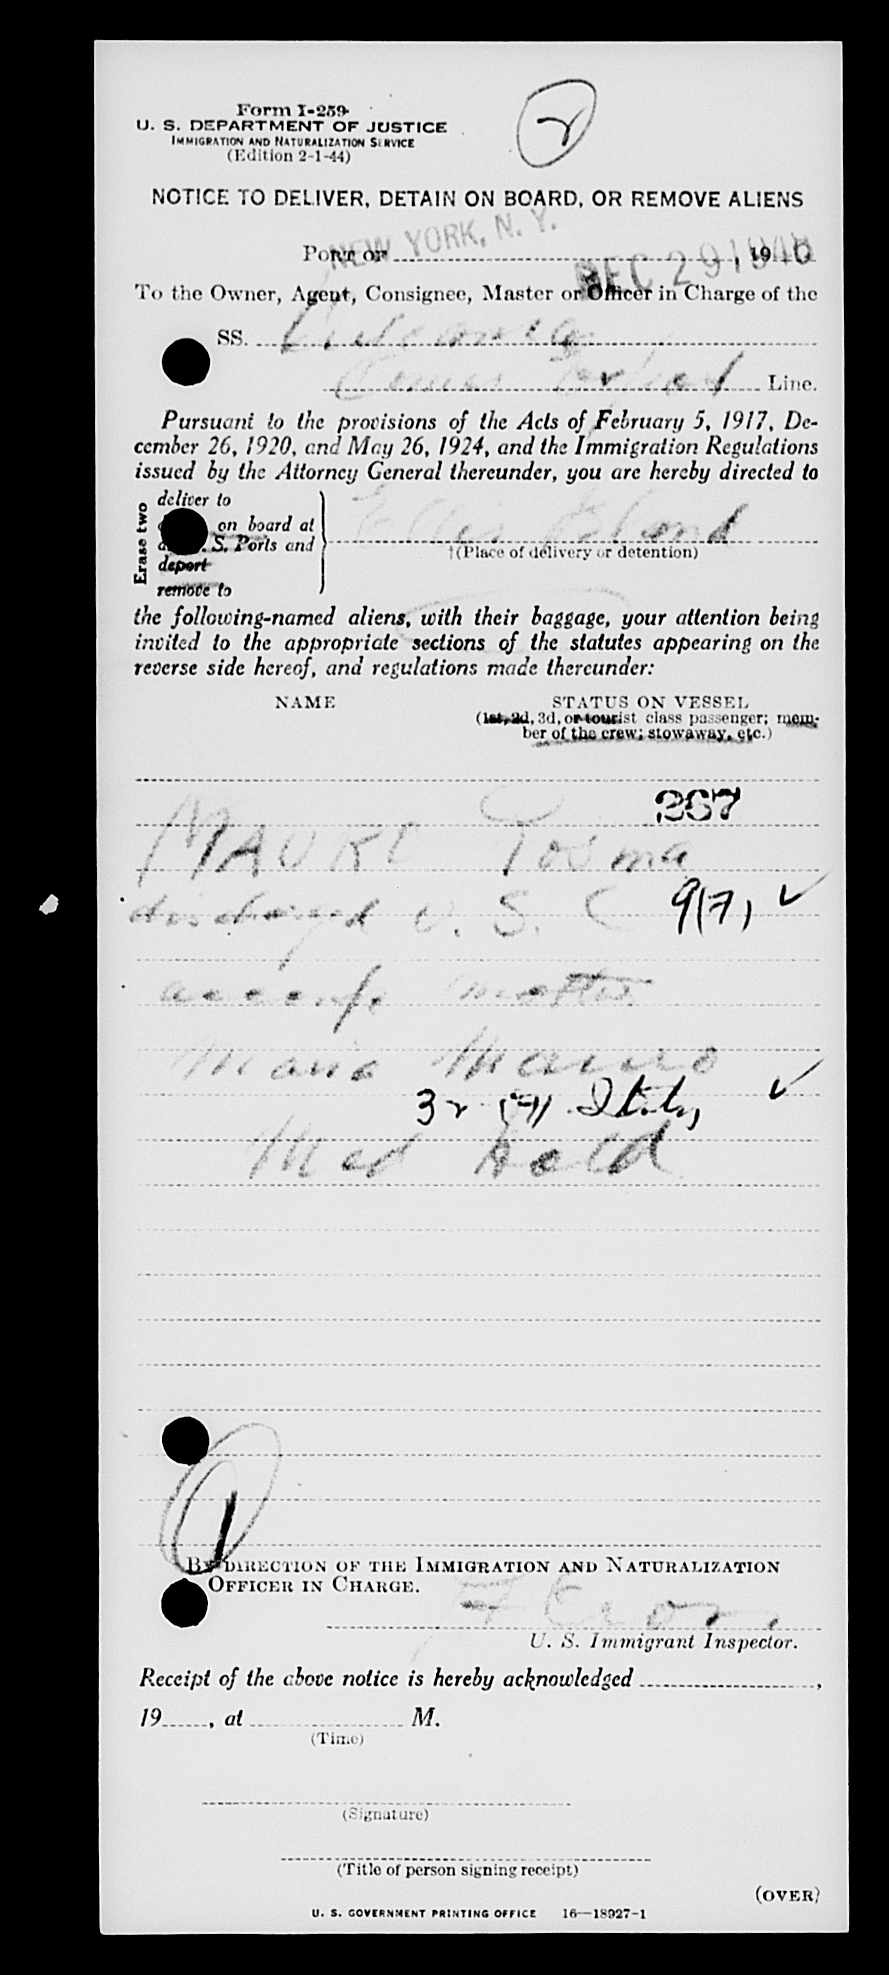 2
Form I-259
U. S. DEPARTMENT OF JUSTICE
IMMIGRATION AND NATURALIZATION SERVICE
(Edition 2-1-44)
NOTICE TO DELIVER, DETAIN ON BOARD, OR REMOVE ALIENS
PORT OF NEW YORK, N. Y. DEC 29 1946, 19
To the Owner, Agent, Consignee, Master or Officer in Charge of the
SS. Vulcania
Line.
Pursuant to the provisions of the Acts of February 5, 1917, De-
cember 26, 1920, and May 26, 1924, and the Immigration Regulations
issued by the Attorney General thereunder, you are hereby directed to
Erase two
deliver to
on board at
S. Ports and
deport
remove to
Ellis Island
†(Place of delivery or detention)
the following-named aliens, with their baggage, your attention being
invited to the appropriate sections of the statutes appearing on the
reverse side hereof, and regulations made thereunder:
NAME STATUS ON VESSEL
(1st, 2d, 3d, or tourist class passenger; mem-
ber of the crew; stowaway, etc.)
367
MAURI Tosma
discharged U. S. C 9(7) ✓
mother
Maria Mauro
✓
Med Held
1
BY DIRECTION OF THE IMMIGRATION AND NATURALIZATION
OFFICER IN CHARGE.
U. S. Immigrant Inspector.
Receipt of the above notice is hereby acknowledged ,
19 , at M.
(Time)
(Signature)
(Title of person signing receipt)
(OVER)
U. S. GOVERNMENT PRINTING OFFICE 16—18927-1